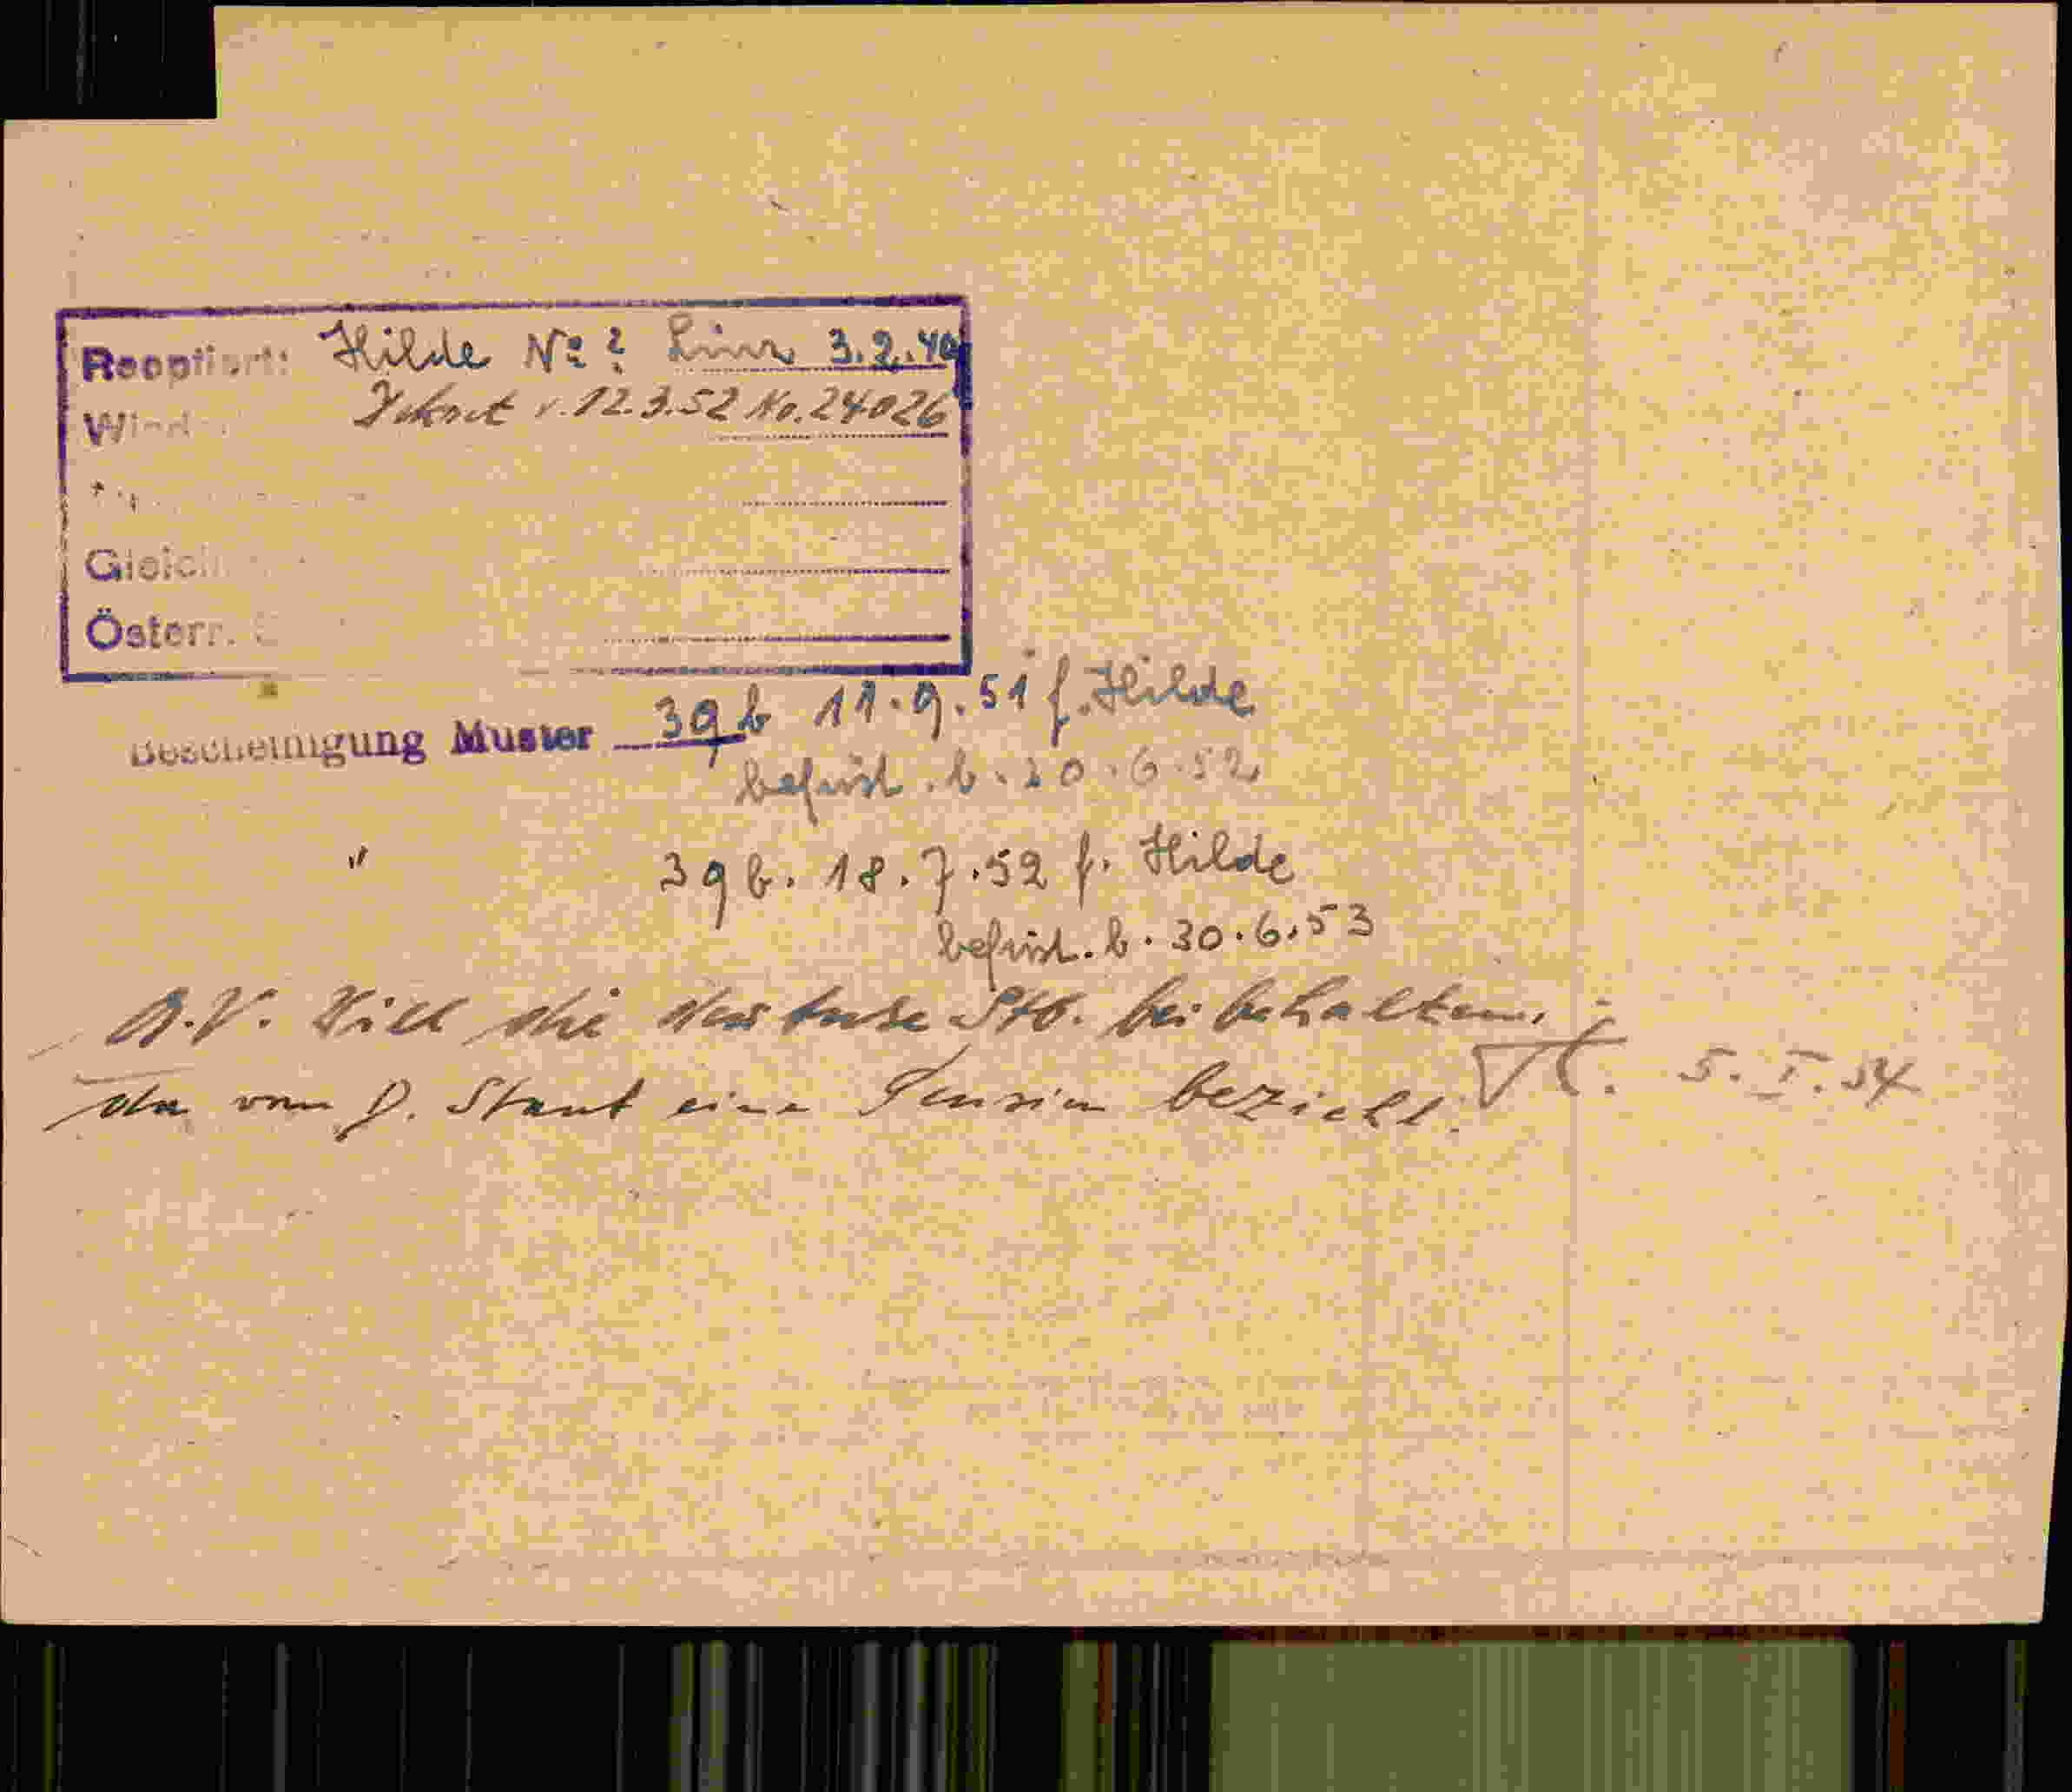 Reoptiert: Hilde No ? Linz 3.2.49
Dekret v. 12.3.52 No. 24026
Gleich
Österr.
Bescheinigung Muster 39 b 11.9.51 f. Hilde
befrist. b. 30.6.52
" 39 b. 18.7.52 f. Hilde
befrist. b. 30.6.53
A.V. Will die deutsche Stb. beibehalten,
da vom D. Staat eine Pension bezieht. 5.I.54